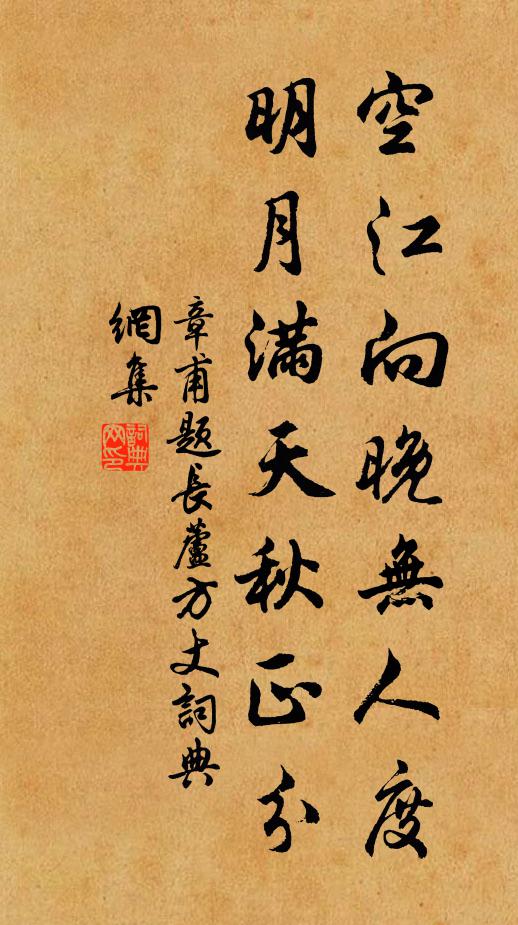 空江向晚無人度
明月滿天秋正分
章甫題長蘆方丈詞典
網集
詞典
网印